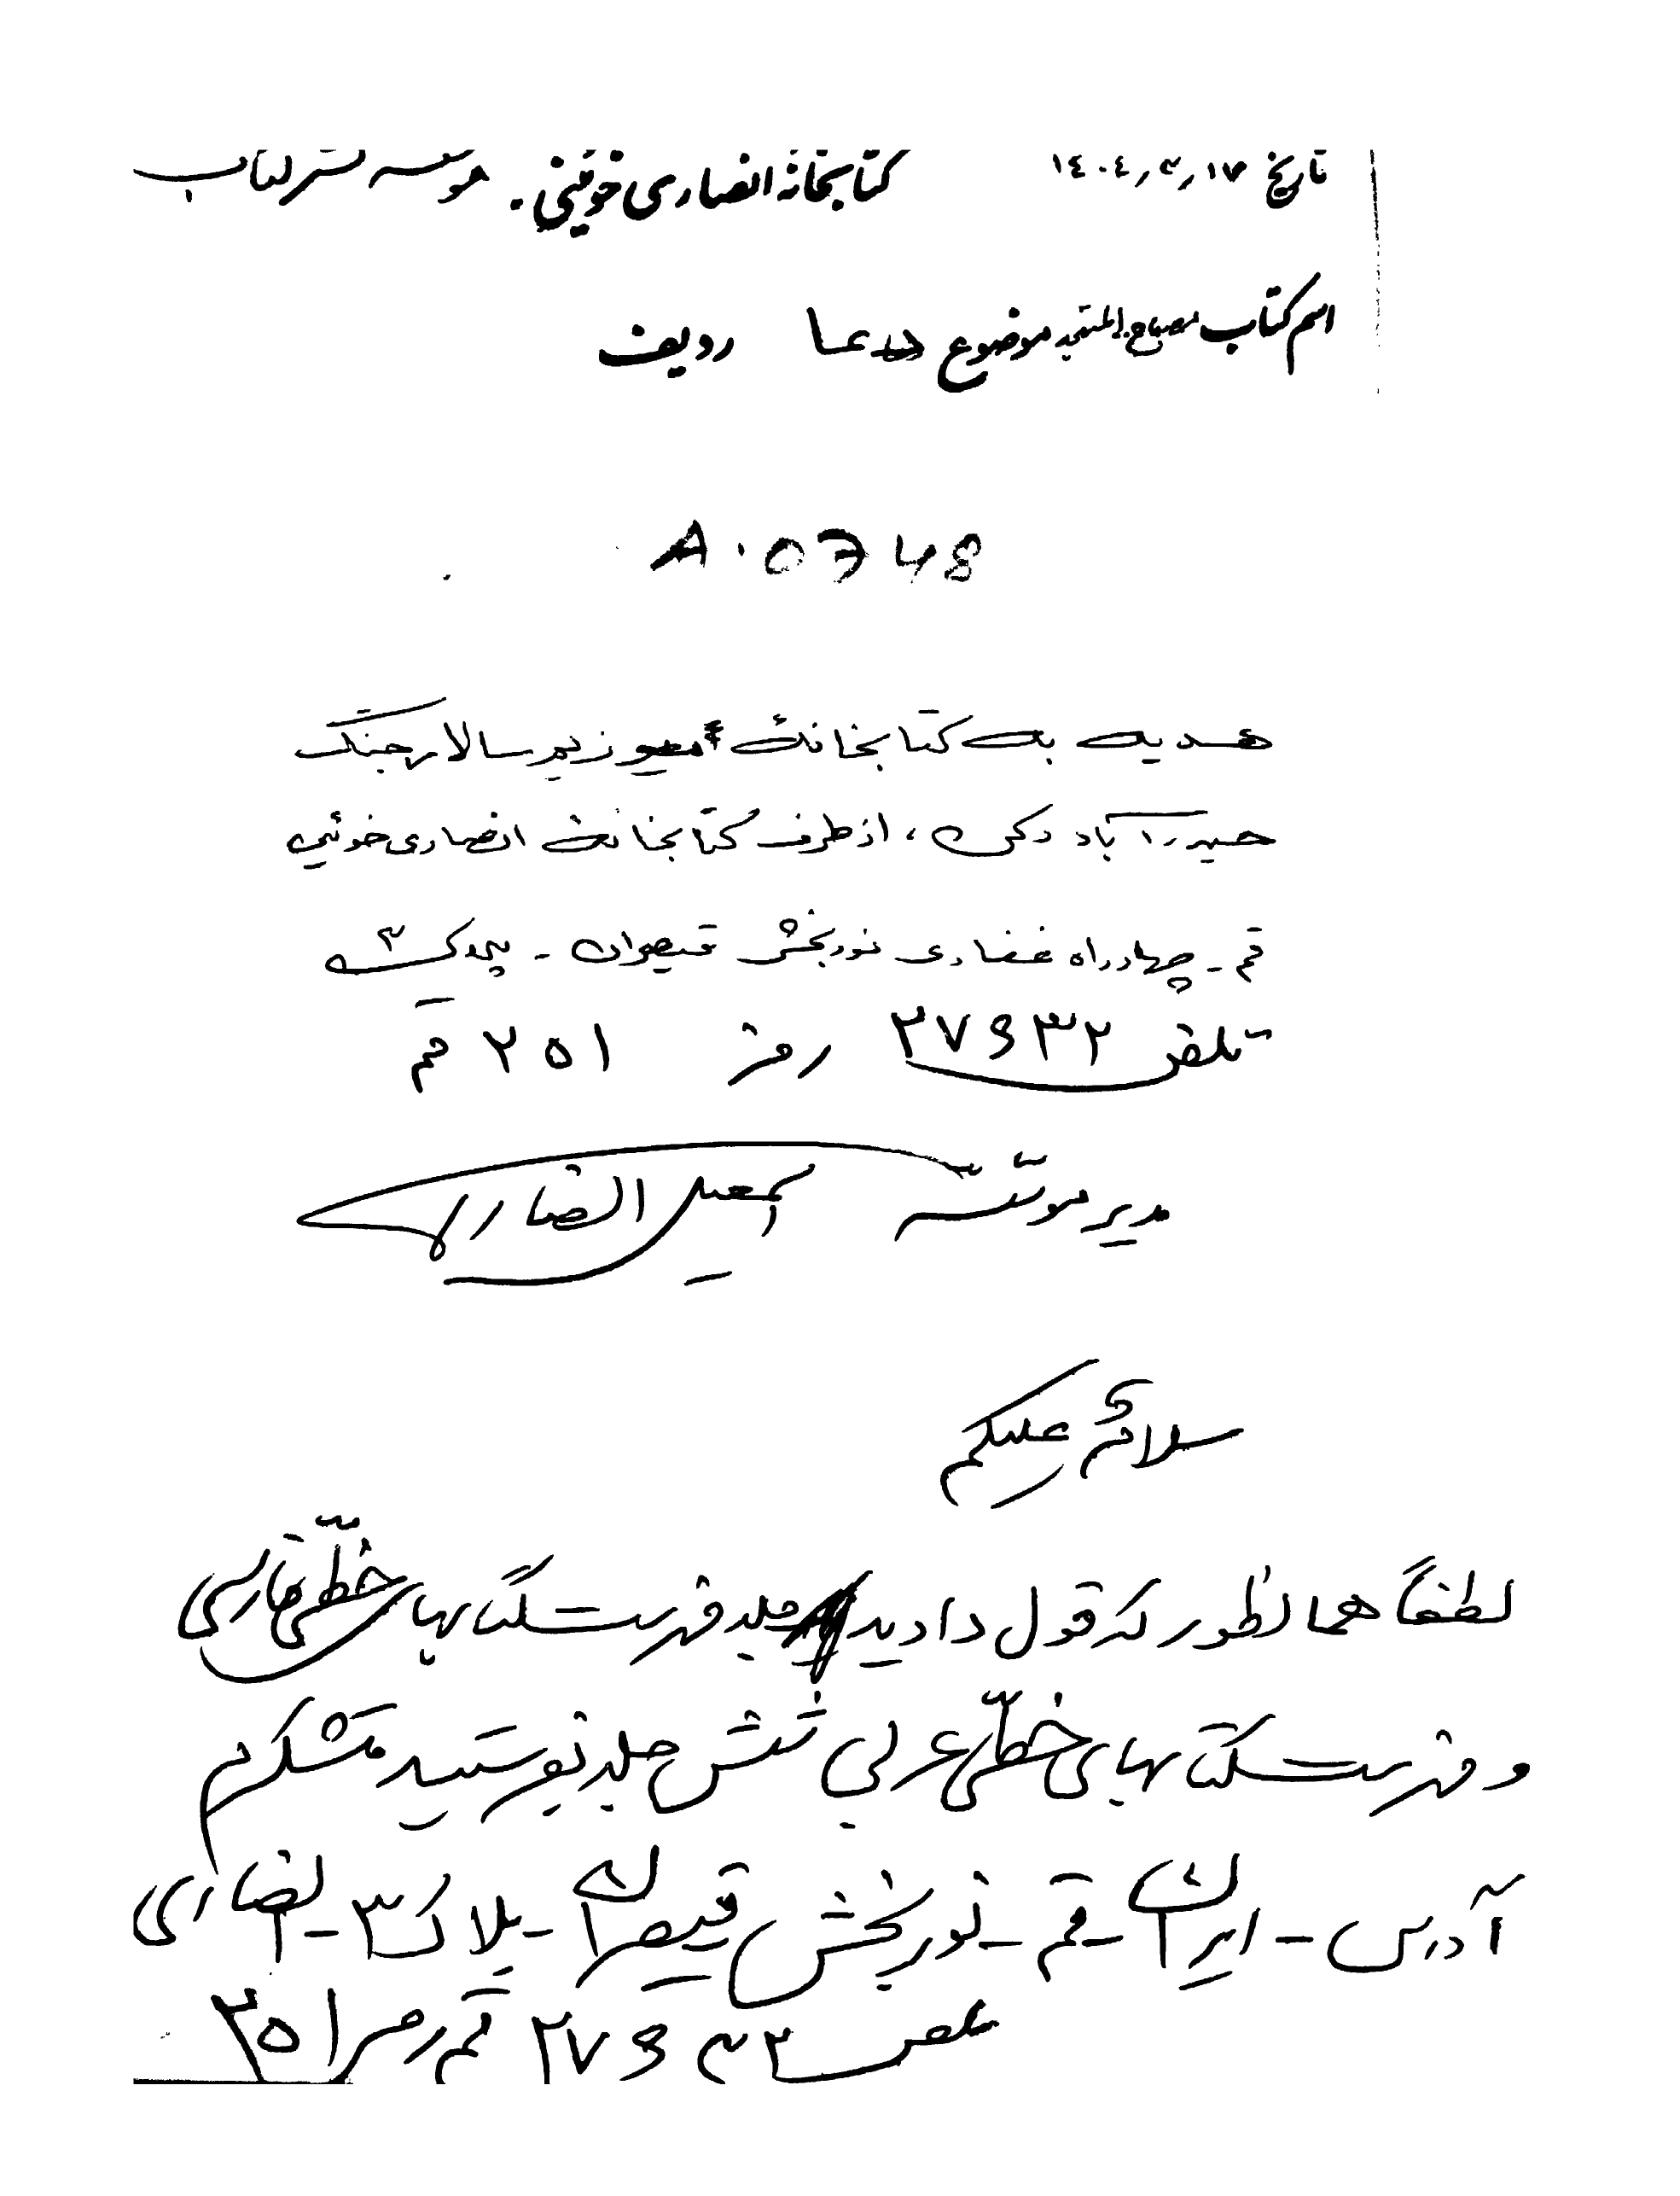 تاریخ ١٧ر٣ر١٤٠٤ كتابخانهٔ انصاری خوئینی . موسسه نشر کتاب
اسم كتاب مصباح المتهجد موضوع دعا ردیف
A.0748
هدیه به کتابخانه موزیم سالار جنگ
حیدرآباد دکن ، از طرف کتابخانه انصاری خوئینی
قم - چهارراه غفاری نوربخش قیصران - پلاک ۳
تلفن ۲۷۶۳۲ رمز ۲۵۱ قم
مدیر موسّسه اسمعیل انصاری
سلامٌ علیکم
لطفاً همانطور که قول دادید جلد فهرست کتابهای خطّی فارسی
و فهرست کتابهای خطّی عربی شش جلد بفرستید متشکرم
آدرس - ایران - قم - نوربخش قیصران - پلاک ۳ - انصاری
تلفن ۲۷۶۳۲ قم رمز ۲۵۱